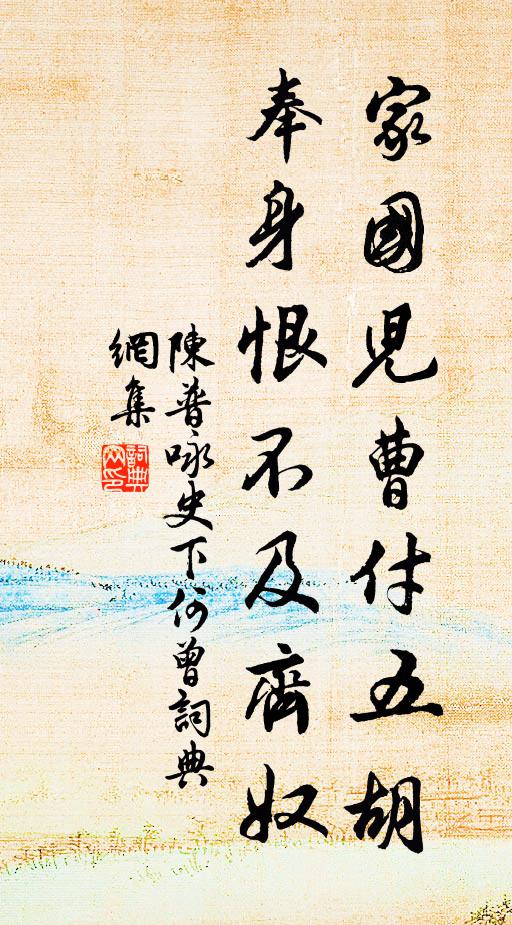 家國兒曹付五胡
奉身恨不及齊奴
陳普咏史下何曾詞典
網集
詞典
网印